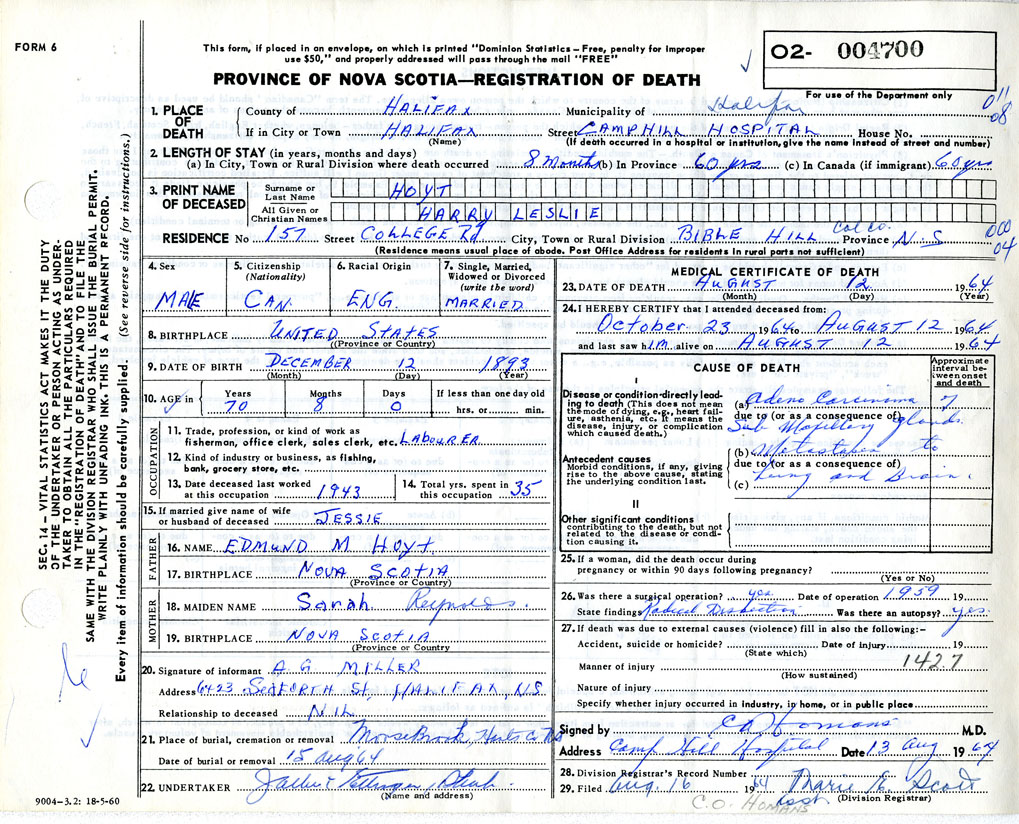 FORM 6
This form, if placed in an envelope, on which is printed "Dominion Statistics – Free, penalty for improper
use $50," and properly addressed will pass through the mail "FREE"
O2- 004700
For use of the Department only
PROVINCE OF NOVA SCOTIA—REGISTRATION OF DEATH
011
08
1. PLACE OF DEATH
County of HALIFAX Municipality of Halifax
If in City or Town HALIFAX Street CAMPHILL HOSPITAL House No.
(Name) (If death occurred in a hospital or institution, give the name instead of street and number)
2. LENGTH OF STAY (in years, months and days)
(a) In City, Town or Rural Division where death occurred 8 Months (b) In Province 60 yrs (c) In Canada (if immigrant) 60 yrs
3. PRINT NAME OF DECEASED
Surname or Last Name HOYT
All Given or Christian Names HARRY LESLIE
RESIDENCE No 157 Street COLLEGE Rd City, Town or Rural Division BIBLE HILL Col Co. Province N.S
000
04
(Residence means usual place of abode. Post Office Address for residents in rural parts not sufficient)
4. Sex MALE
5. Citizenship (Nationality) CAN.
6. Racial Origin ENG.
7. Single, Married, Widowed or Divorced (write the word) MARRIED
8. BIRTHPLACE UNITED STATES
(Province or Country)
9. DATE OF BIRTH DECEMBER 12 1893
(Month) (Day) (Year)
10. AGE in Years 70 Months 8 Days 0 If less than one day old hrs. or min.
OCCUPATION
11. Trade, profession, or kind of work as
fisherman, office clerk, sales clerk, etc. LABOURER
12. Kind of industry or business, as fishing,
bank, grocery store, etc.
13. Date deceased last worked at this occupation 1943
14. Total yrs. spent in this occupation 35
15. If married give name of wife or husband of deceased JESSIE
FATHER
16. NAME EDMUND M HOYT
17. BIRTHPLACE NOVA SCOTIA
(Province or Country)
MOTHER
18. MAIDEN NAME Sarah Reynolds.
19. BIRTHPLACE NOVA SCOTIA
(Province or Country)
20. Signature of informant A G MILLER
Address 6423 SEAFORTH St, HALIFAX, N.S
Relationship to deceased NIL
21. Place of burial, cremation or removal MooseBrook, Hants Co NS
Date of burial or removal 15 aug 64
22. UNDERTAKER
(Name and address)
9004-3.2: 18-5-60
MEDICAL CERTIFICATE OF DEATH
23. DATE OF DEATH AUGUST 12 1964
(Month) (Day) (Year)
24. I HEREBY CERTIFY that I attended deceased from:
October 23 1964 to AUGUST 12 1964
and last saw him alive on AUGUST 12 1964
CAUSE OF DEATH
Approximate interval between onset and death
I
Disease or condition directly leading to death (This does not mean the mode of dying, e.g., heart failure, asthenia, etc. It means the disease, injury, or complication which caused death.)
(a) Adeno Carcinoma 7
due to (or as a consequence of)
Sub Maxillary glands.
Antecedent causes
Morbid conditions, if any, giving rise to the above cause, stating the underlying condition last.
(b) Metastases to
due to (or as a consequence of)
(c) Lung and Brain.
II
Other significant conditions
contributing to the death, but not related to the disease or condition causing it.
25. If a woman, did the death occur during
pregnancy or within 90 days following pregnancy?
(Yes or No)
26. Was there a surgical operation? yes Date of operation 1959 19
State findings Radical Dissection Was there an autopsy? yes.
27. If death was due to external causes (violence) fill in also the following:–
Accident, suicide or homicide? Date of injury 19
(State which)
1427
Manner of injury
(How sustained)
Nature of injury
Specify whether injury occurred in industry, in home, or in public place
Signed by C O Homans M.D.
Address Camp Hill Hospital Date 13 Aug 1964
28. Division Registrar's Record Number
29. Filed Aug. 16 1964 Marie E. Scott
Asst (Division Registrar)
C.O. HOMANS
SEC. 14 – VITAL STATISTICS ACT MAKES IT THE DUTY
OF THE UNDERTAKER OR PERSON ACTING AS UNDERTAKER TO OBTAIN ALL THE PARTICULARS REQUIRED
IN THE "REGISTRATION OF DEATH" AND TO FILE THE
SAME WITH THE DIVISION REGISTRAR WHO SHALL ISSUE THE BURIAL PERMIT.
WRITE PLAINLY WITH UNFADING INK. THIS IS A PERMANENT RECORD.
Every item of information should be carefully supplied. (See reverse side for instructions.)